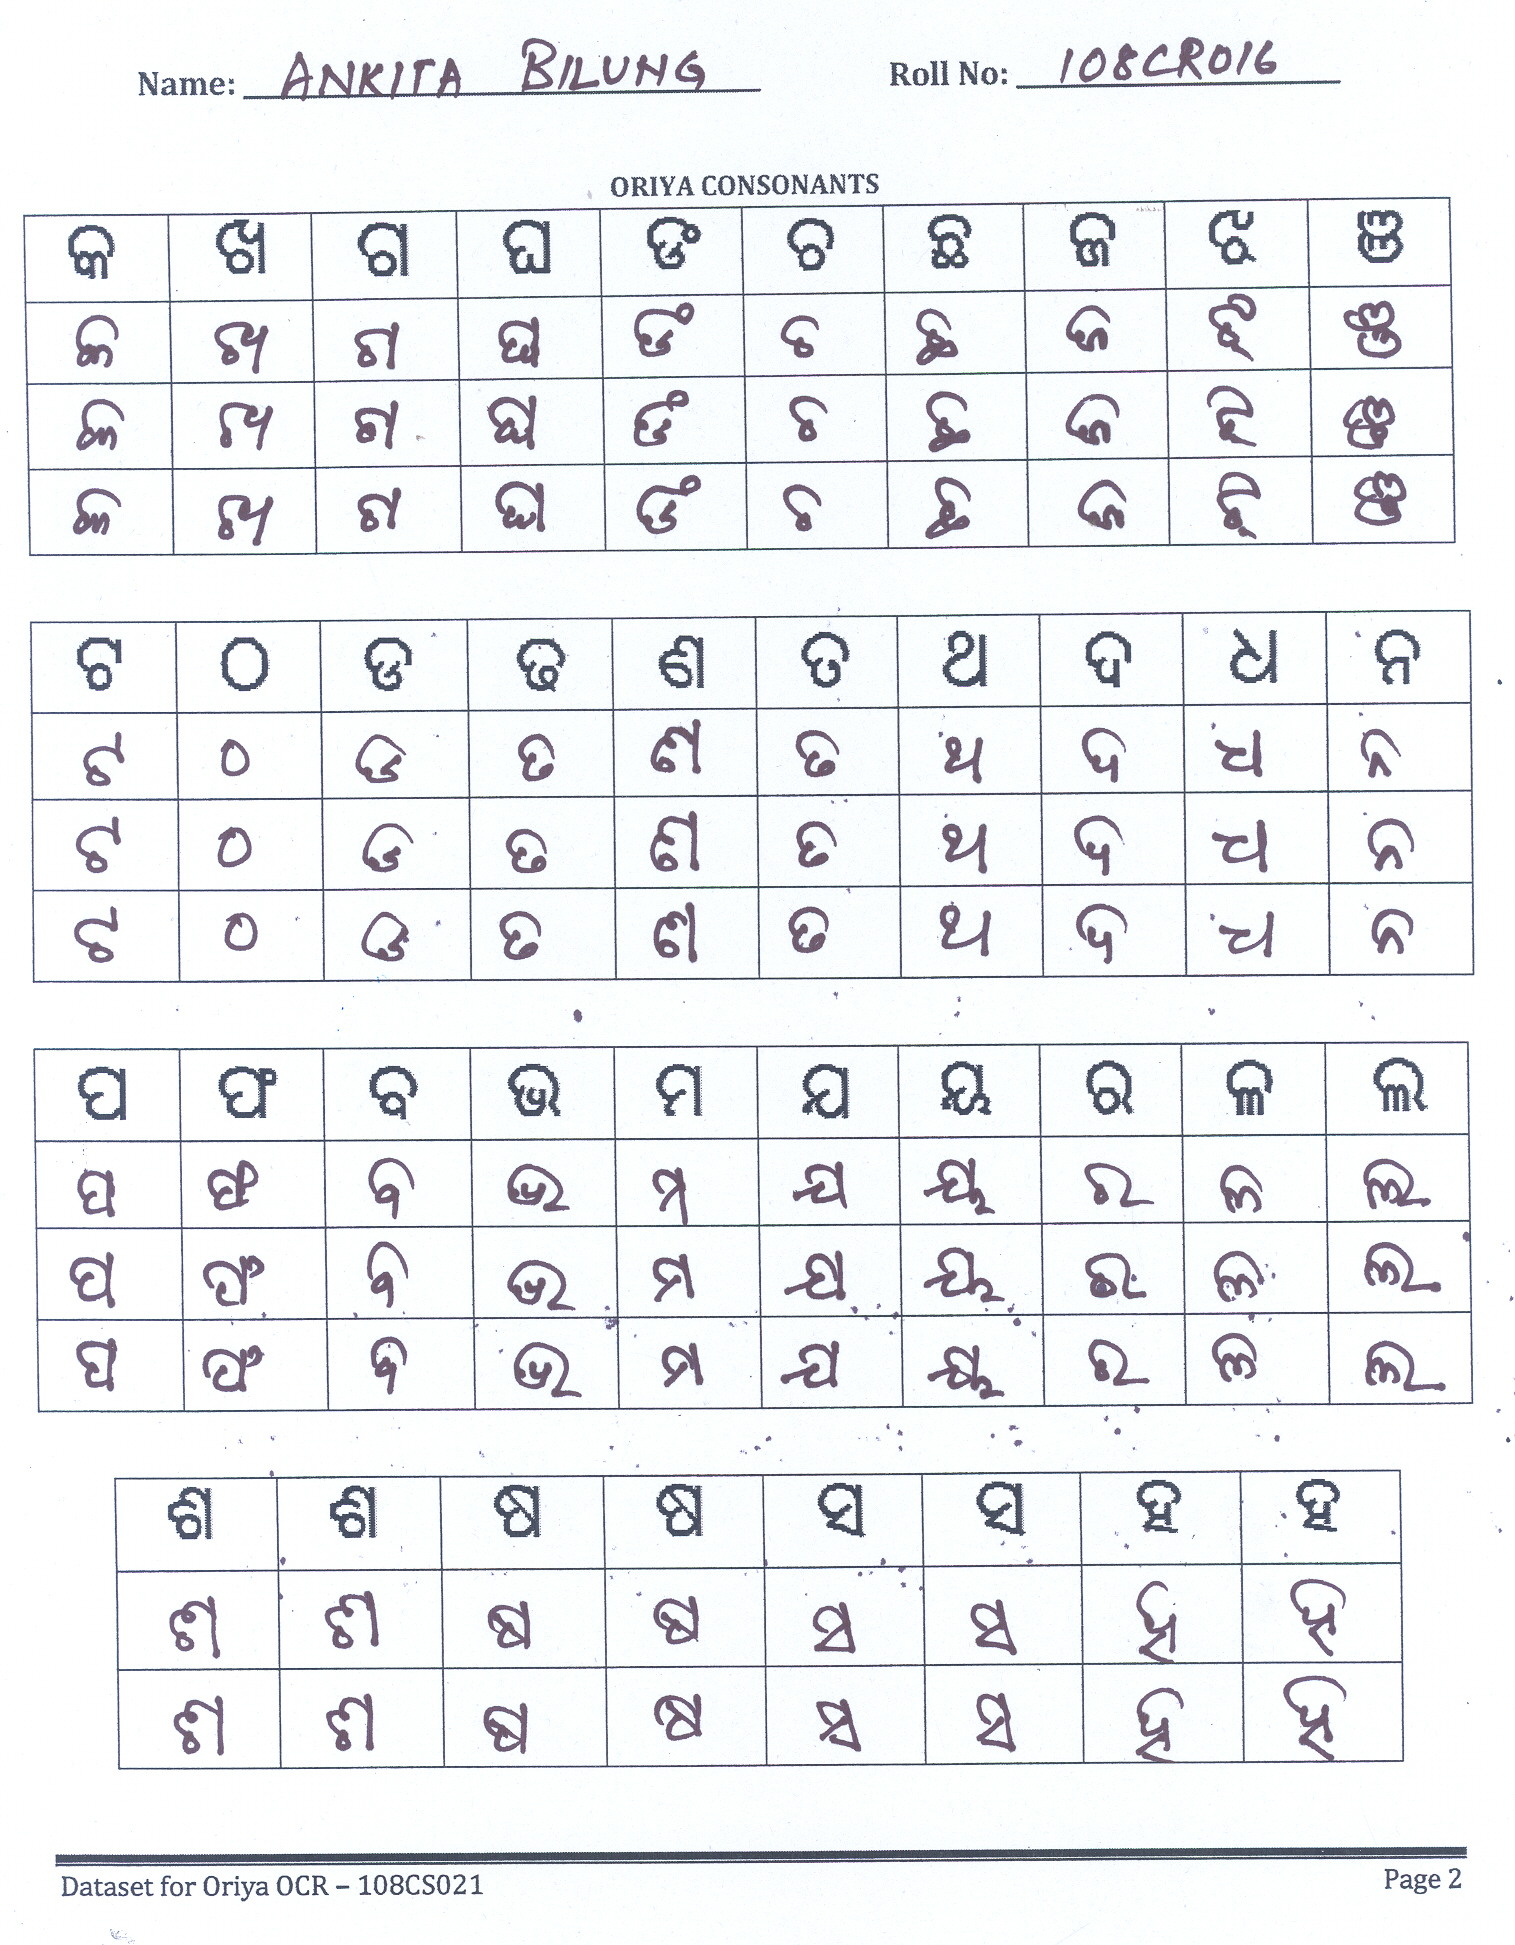 Name: ANKITA BILUNG Roll No: 108CR016
ORIYA CONSONANTS
କ ଖ ଗ ଘ ଙ ଚ ଛ ଜ ଝ ଞ
କ ଖ ଗ ଘ ଙ ଚ ଛ ଜ ଝ ଞ
କ ଖ ଗ ଘ ଙ ଚ ଛ ଜ ଝ ଞ
କ ଖ ଗ ଘ ଙ ଚ ଛ ଜ ଝ ଞ
ଟ ଠ ଡ ଢ ଣ ତ ଥ ଦ ଧ ନ
ଟ ଠ ଡ ଢ ଣ ତ ଥ ଦ ଧ ନ
ଟ ଠ ଡ ଢ ଣ ତ ଥ ଦ ଧ ନ
ଟ ଠ ଡ ଢ ଣ ତ ଥ ଦ ଧ ନ
ପ ଫ ବ ଭ ମ ଯ ୟ ର ଳ ଲ
ପ ଫ ବ ଭ ମ ଯ ୟ ର ଳ ଲ
ପ ଫ ବ ଭ ମ ଯ ୟ ର ଳ ଲ
ପ ଫ ବ ଭ ମ ଯ ୟ ର ଳ ଲ
ଶ ଶ ଷ ଷ ସ ସ ହ ହ
ଶ ଶ ଷ ଷ ସ ସ ହ ହ
ଶ ଶ ଷ ଷ ସ ସ ହ ହ
Dataset for Oriya OCR – 108CS021 Page 2